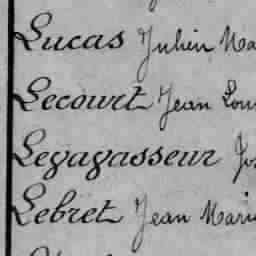 Lucas Julien Ma
Lecourt Jean Lou
Legagasseur Jo
Lebret Jean Marie